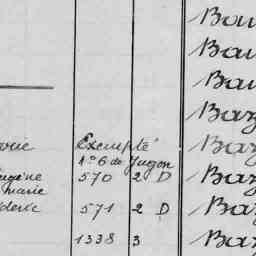 Bau
Bau
Bau
Baz
Exempté Baz
n° 6 de Jugon
570 2 D Baz
marie
571 2 D Baz
1338 3 Baz